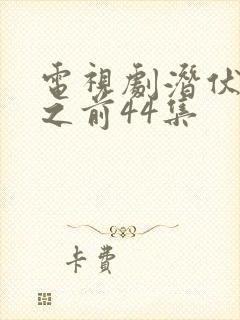 電視劇潛伏
之前44集
卡費